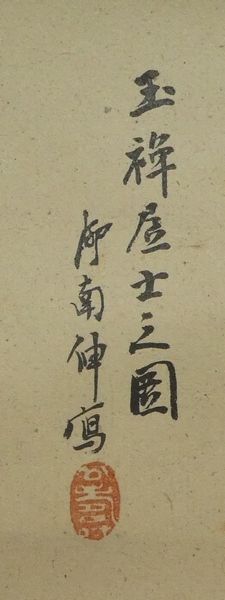 玉禅居士之圖
柳南伸寫